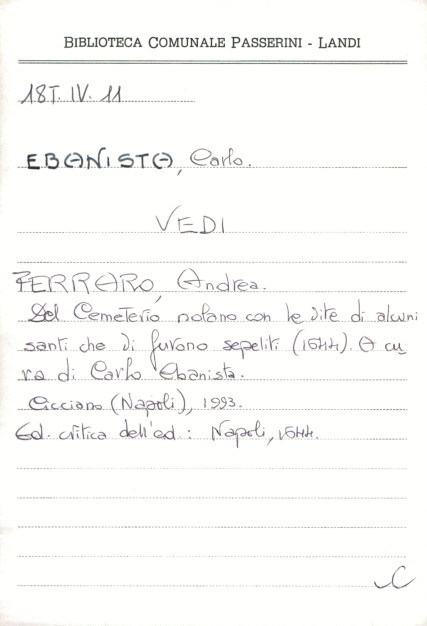 BIBLIOTECA COMUNALE PASSERINI - LANDI
18T. IV. 11
EBANISTA, Carlo.
VEDI
FERRARO, Andrea.
Del Cemeterio nolano con le vite di alcuni
santi che vi furono sepeliti (1644). A cu
ra di Carlo Ebanista.
Cicciano (Napoli), 1993.
Ed. critica dell'ed.: Napoli, 1644.